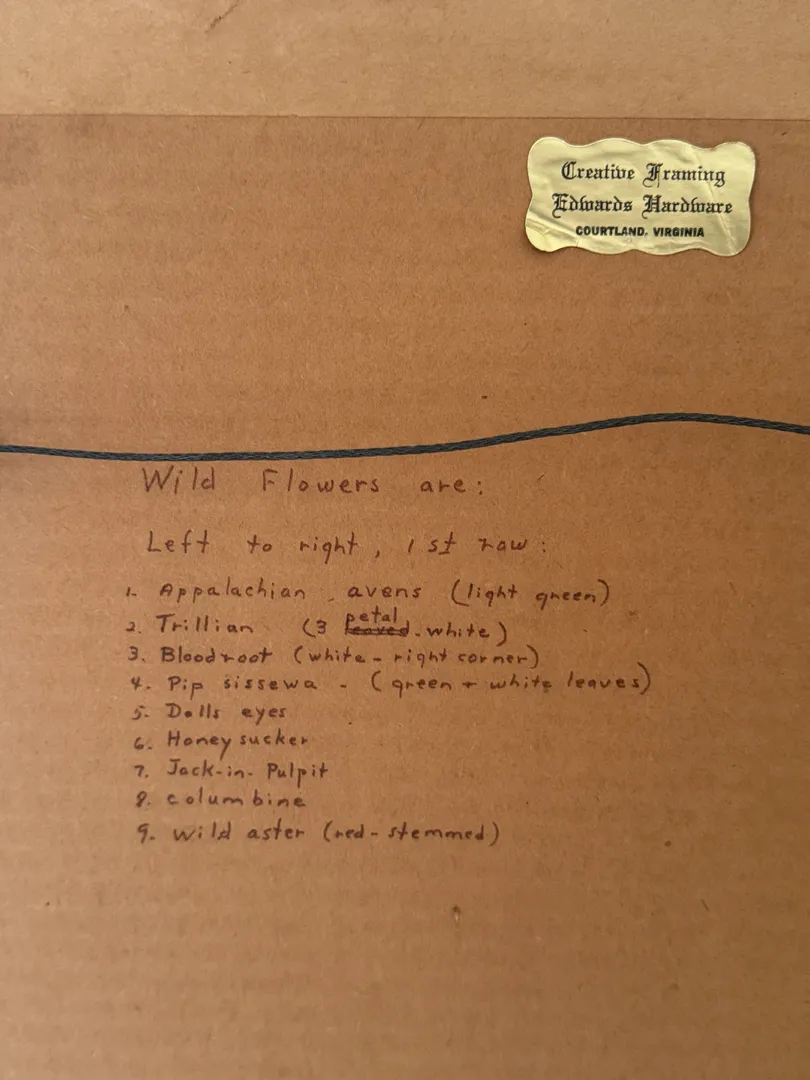 Creative Framing
Edwards Hardware
COURTLAND, VIRGINIA
Wild Flowers are:
Left to right, 1st row:
1. Appalachian avens (light green)
2. Trillian (3 petal leaved - white)
3. Bloodroot (white - right corner)
4. Pip sissewa - (green + white leaves)
5. Dolls eyes
6. Honey sucker
7. Jack-in-Pulpit
8. columbine
9. wild aster (red-stemmed)